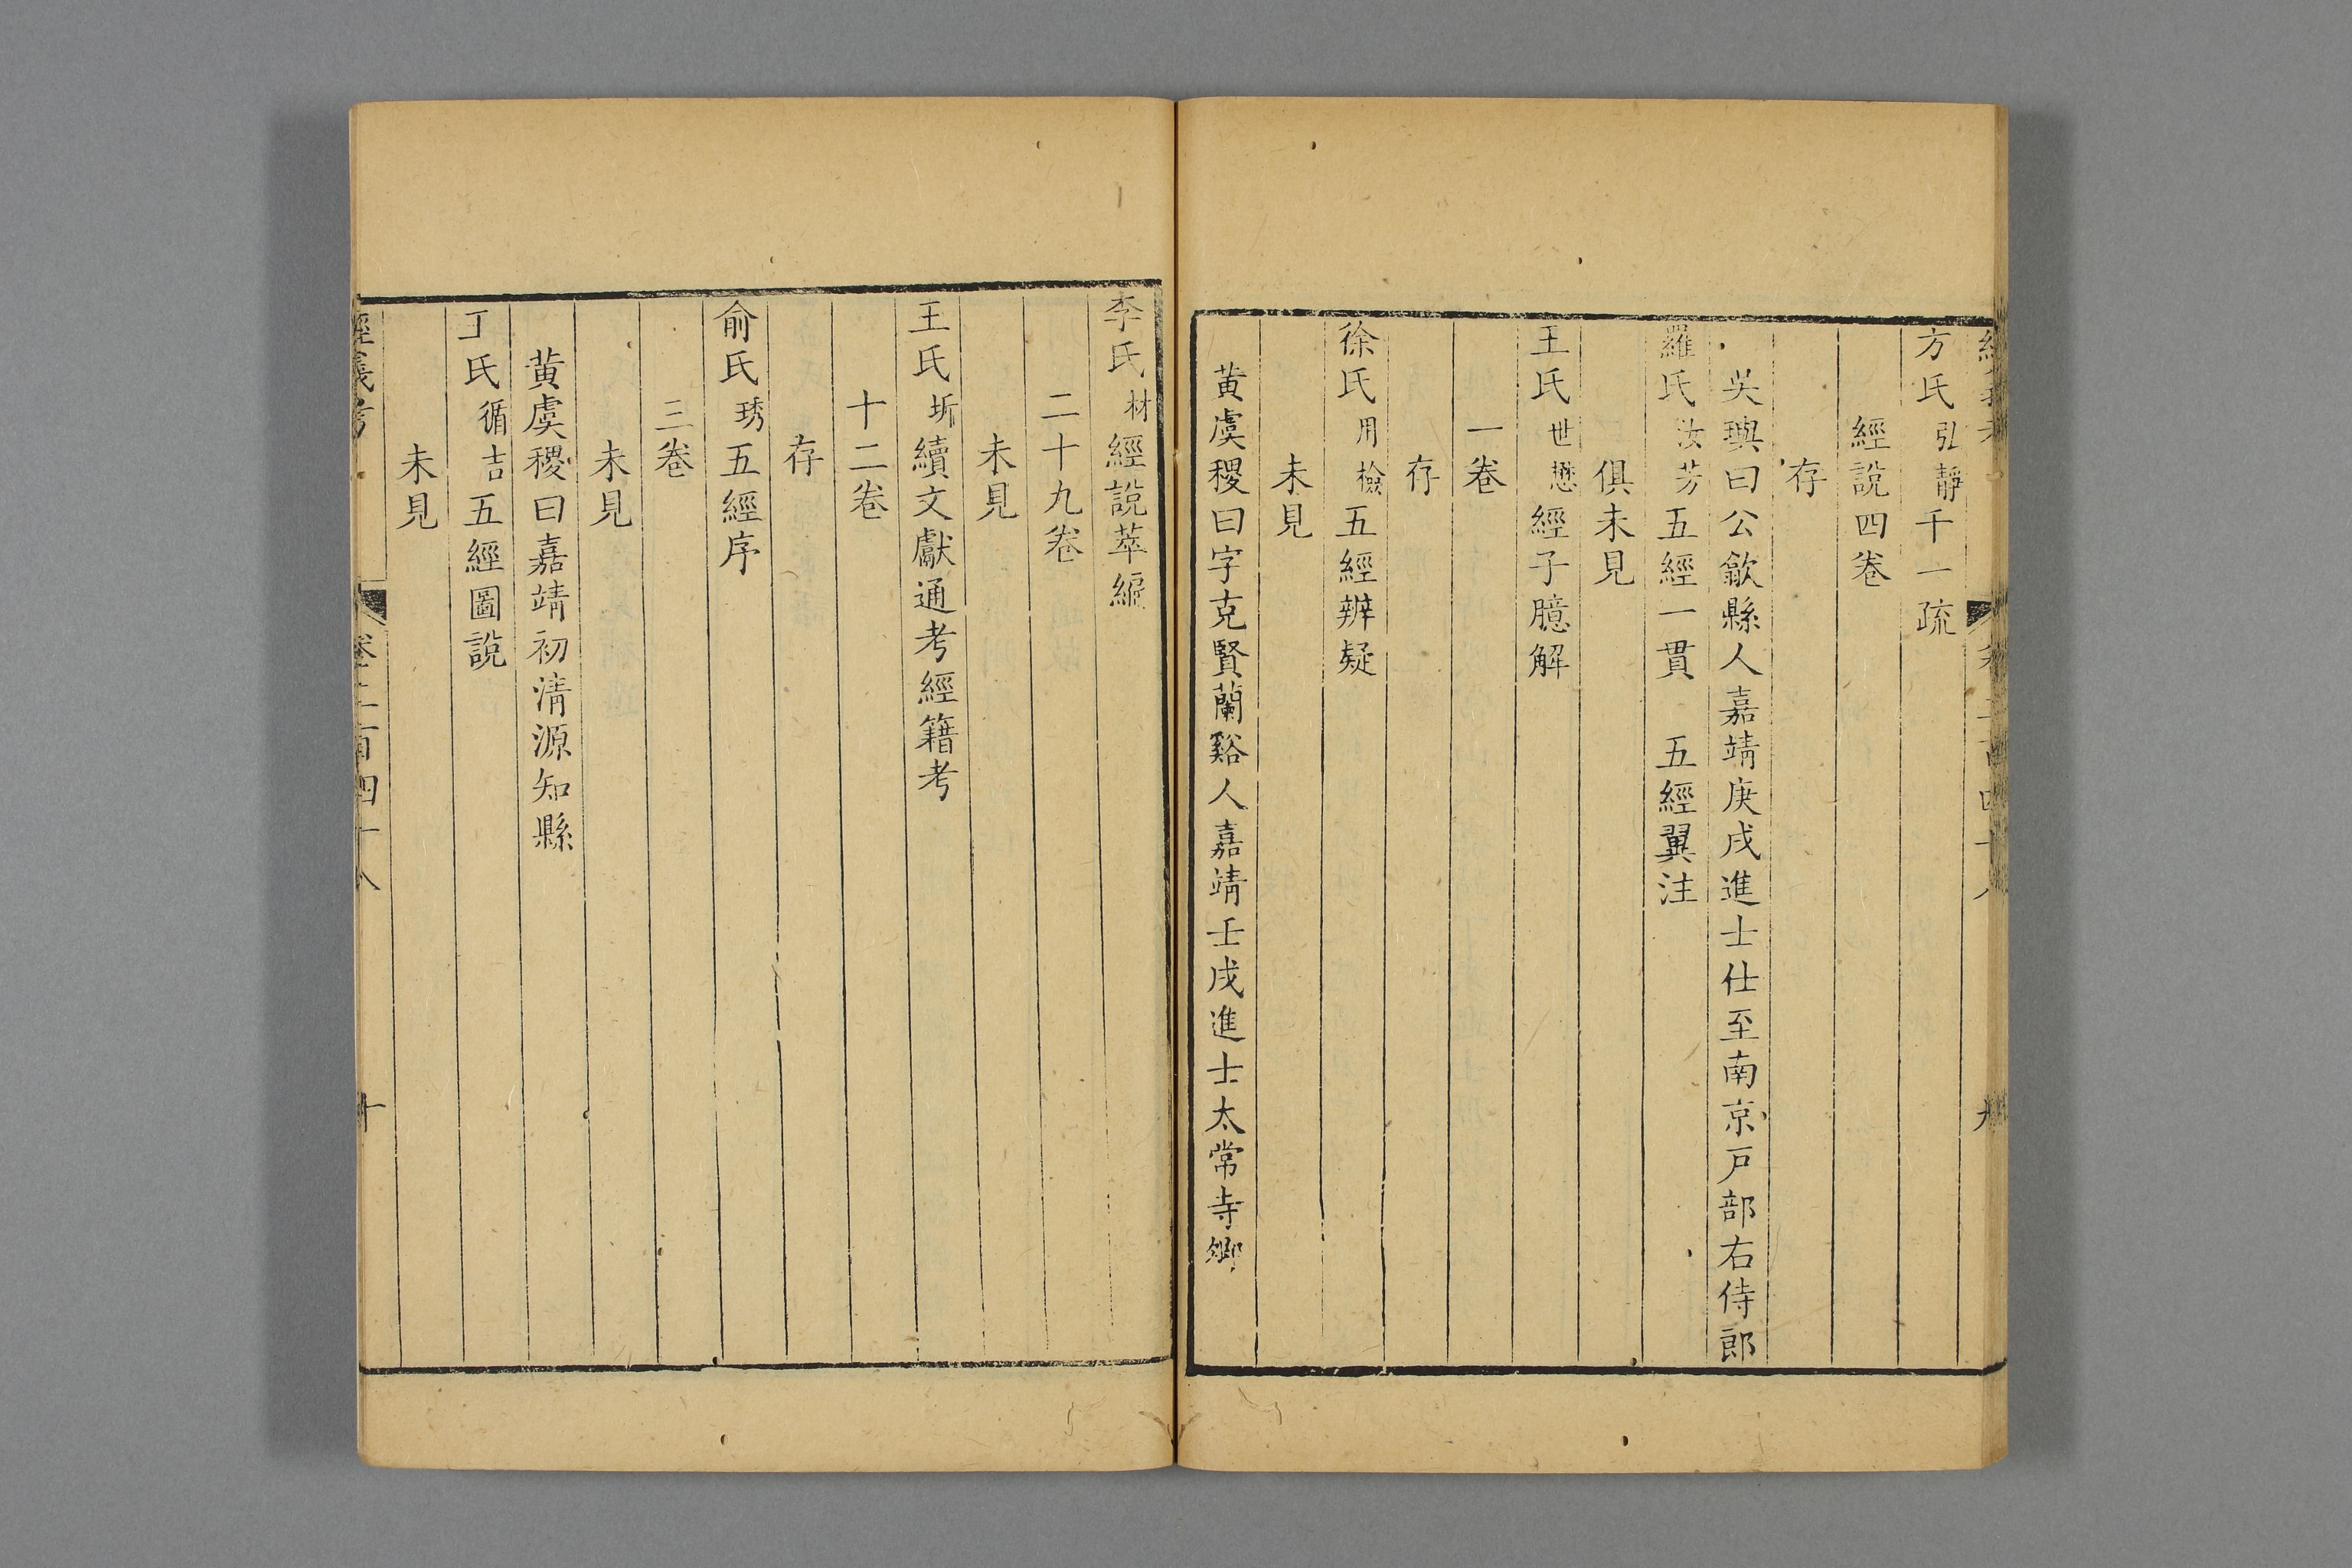 方氏弘靜千一疏
經說四卷
存
吳璵曰公歙縣人嘉靖庚戌進士仕至南京戸部右侍郎
羅氏汝芳五經一貫　五經翼注
俱未見
王氏世懋經子臆解
一卷
存
徐氏用檢五經辨疑
未見
黃虞稷曰字克賢蘭谿人嘉靖壬戌進士太常寺卿
李氏材經說萃編
二十九卷
未見
王氏圻續文獻通考經籍考
十二卷
存
俞氏琇五經序
三卷
未見
黃虞稷曰嘉靖初淸源知縣
王氏循吉五經圖說
未見
經義考
卷二百四十八
十